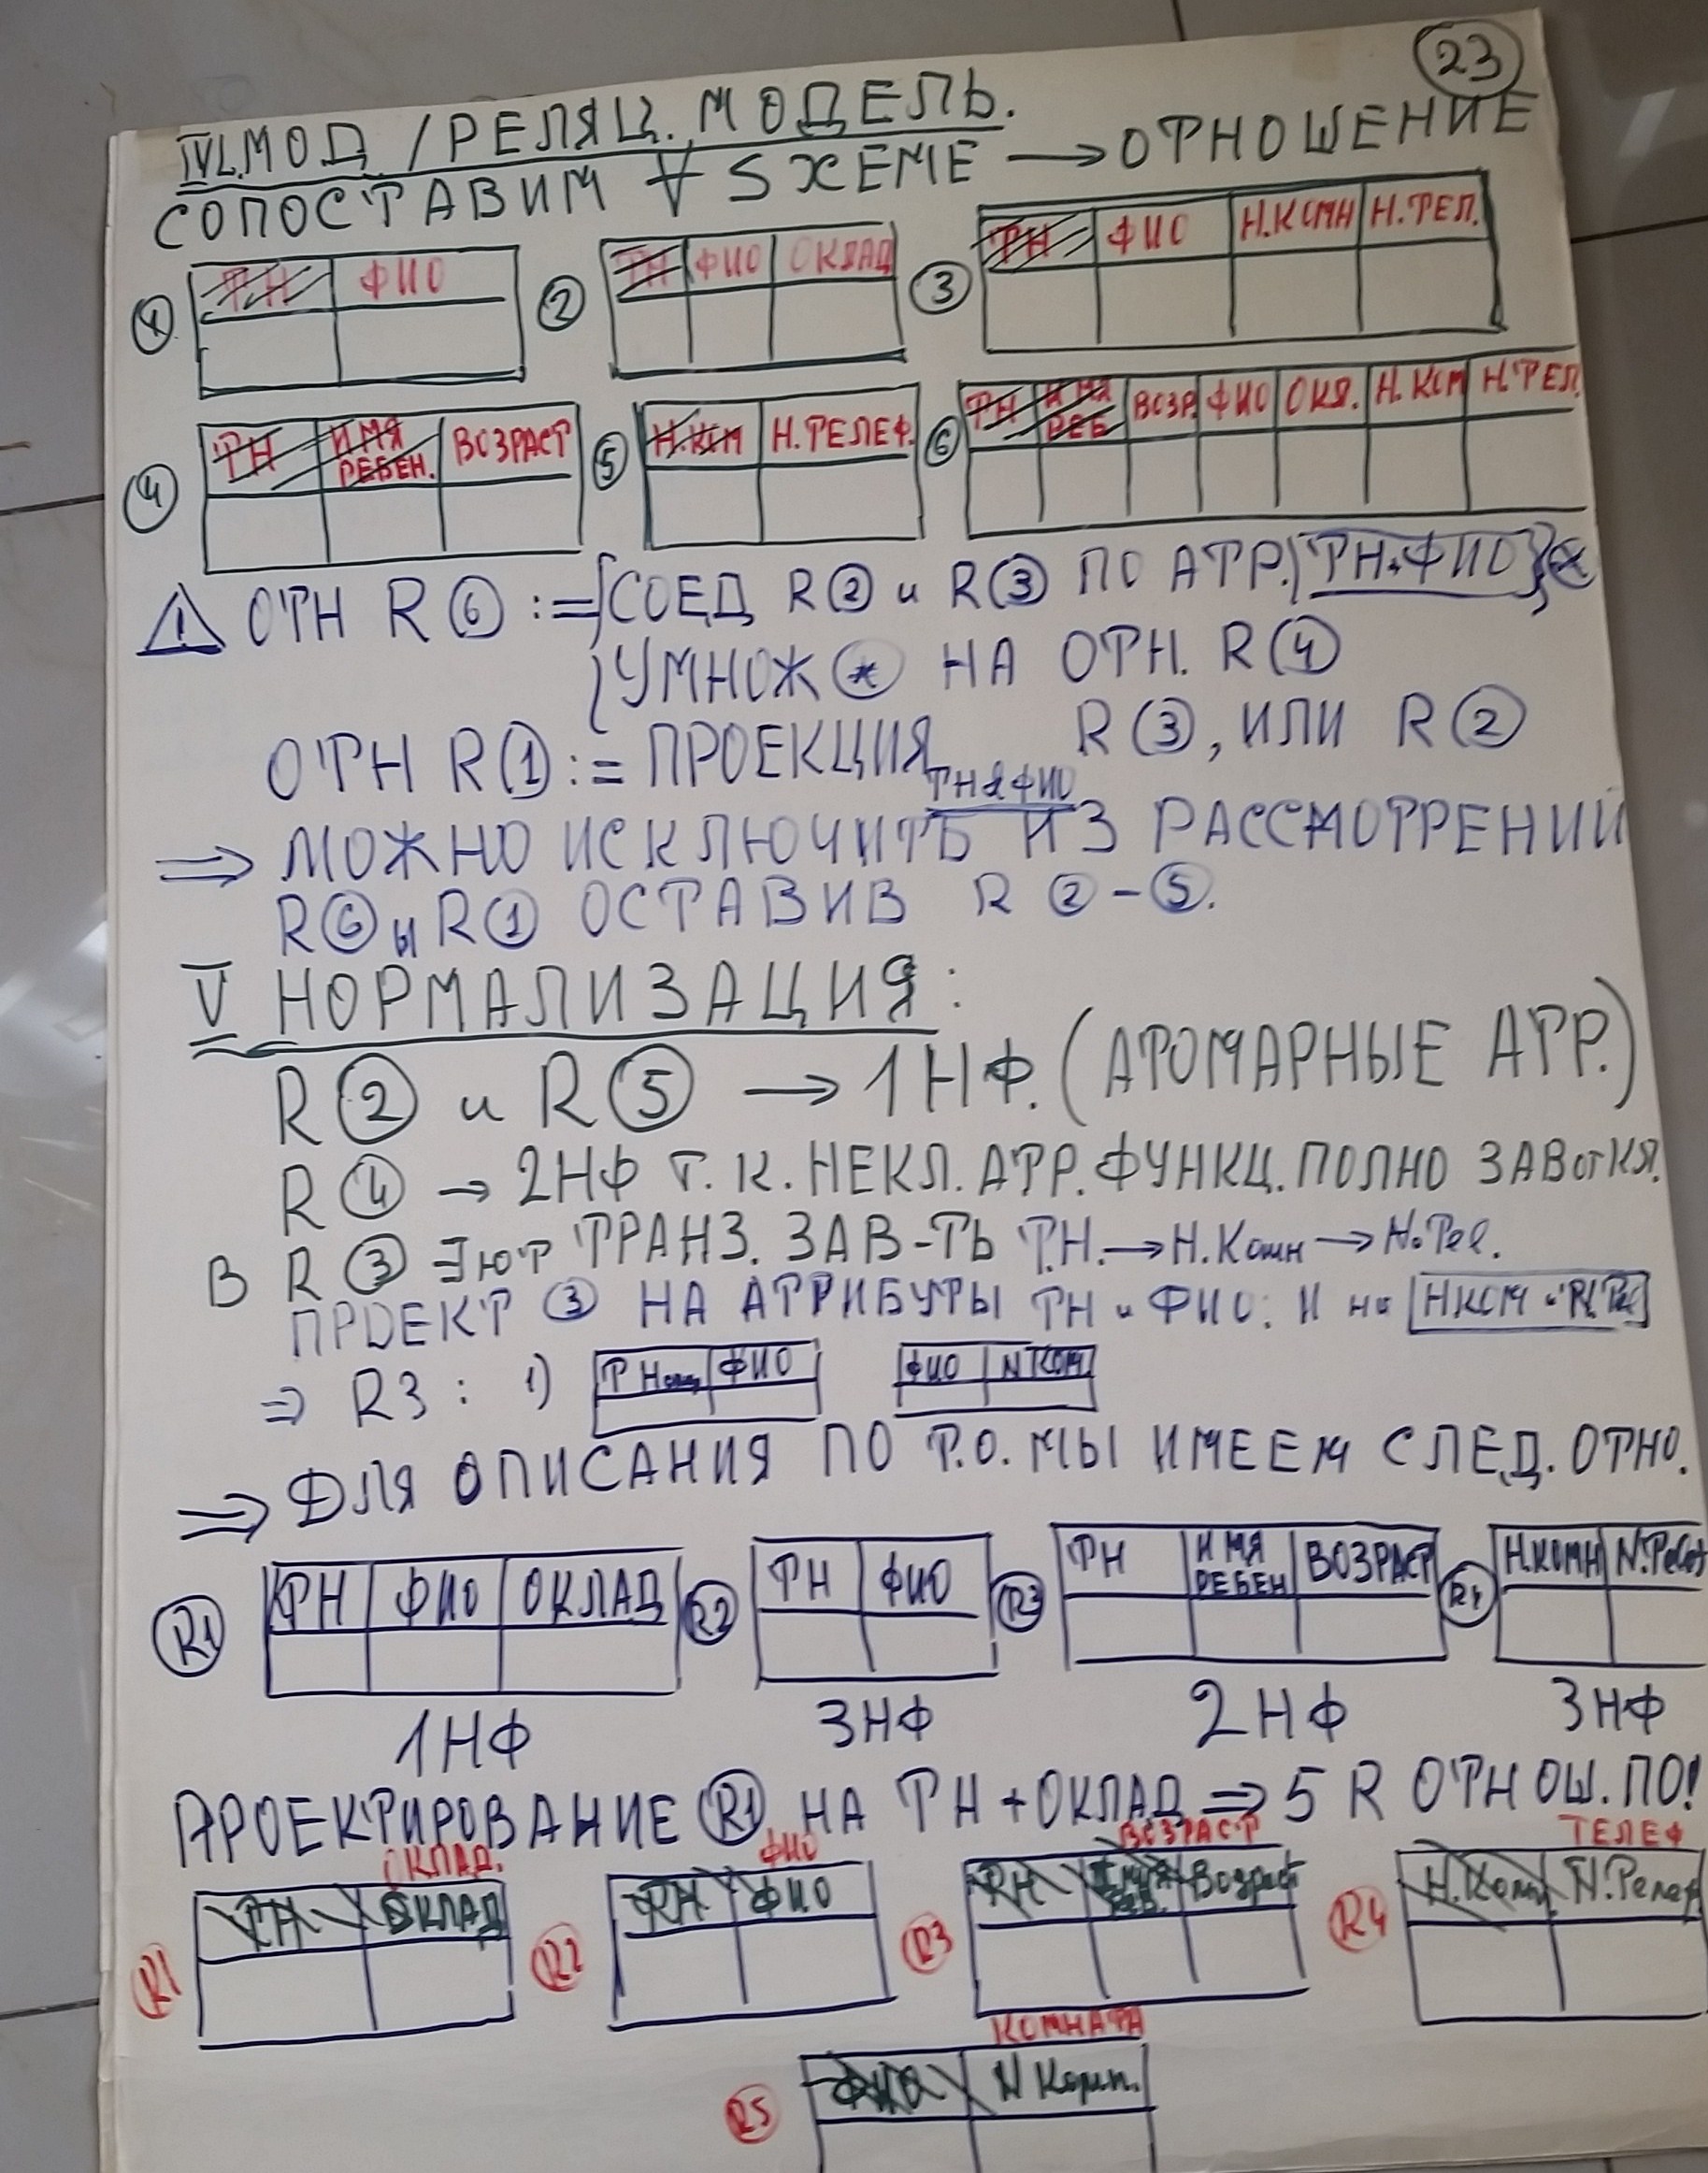 23
IV L.МОД. / РЕЛЯЦ. МОДЕЛЬ.
СОПОСТАВИМ ∀ SХЕМЕ → ОТНОШЕНИЕ
1 ТН ФИО
2 ТН ФИО ОКЛАД
3 ТН ФИО Н.КОМН Н.ТЕЛ.
4 ТН ИМЯ РЕБЕН. ВОЗРАСТ
5 Н.КОМ Н.ТЕЛЕФ.
6 ТН ИМЯ РЕБ ВОЗР. ФИО ОКЛ. Н.КОМ Н.ТЕЛ.
! ОТН R 6 := { СОЕД R 2 и R 3 ПО АТР. { ТН+ФИО } *
УМНОЖ * НА ОТН. R 4
ОТН R 1 := ПРОЕКЦИЯ ТН & ФИО R 3, ИЛИ R 2
⇒ МОЖНО ИСКЛЮЧИТЬ ИЗ РАССМОТРЕНИЙ
R 6 и R 1 ОСТАВИВ R 2 – 5.
V НОРМАЛИЗАЦИЯ:
R 2 и R 5 → 1НФ. (АТОМАРНЫЕ АТР.)
R 4 → 2НФ Т.К. НЕКЛ. АТР. ФУНКЦ. ПОЛНО ЗАВ от КЛ.
В R 3 ∃ЮТ ТРАНЗ. ЗАВ-ТЬ Т.Н. → Н.Комн → Н.Тел.
ПРОЕКТ 3 НА АТРРИБУТЫ ТН и ФИО: И на НКОМ и
⇒ R3: 1) ТН ФИО ФИО N КОМ.
⇒ ДЛЯ ОПИСАНИЯ ПО Т.О. МЫ ИМЕЕМ СЛЕД. ОТНО.
R1 ТН ФИО ОКЛАД
R2 ТН ФИО
R3 ТН ИМЯ РЕБЕН ВОЗРАСТ
R4 Н.КОМН
1НФ 3НФ 2НФ 3НФ
ПРОЕКТИРОВАНИЕ R1 НА ТН + ОКЛАД ⇒ 5 R ОТНОШ. ПО!
ОКЛАД. ФИО ВОЗРАСТ ТЕЛЕФ
R1 ТН ОКЛАД
R2 ТН ФИО
R3 ТН Имя Реб. Возраст
R4 Н.Комн N.Телеф
КОМНАТА
R5 ФИО N Комн.